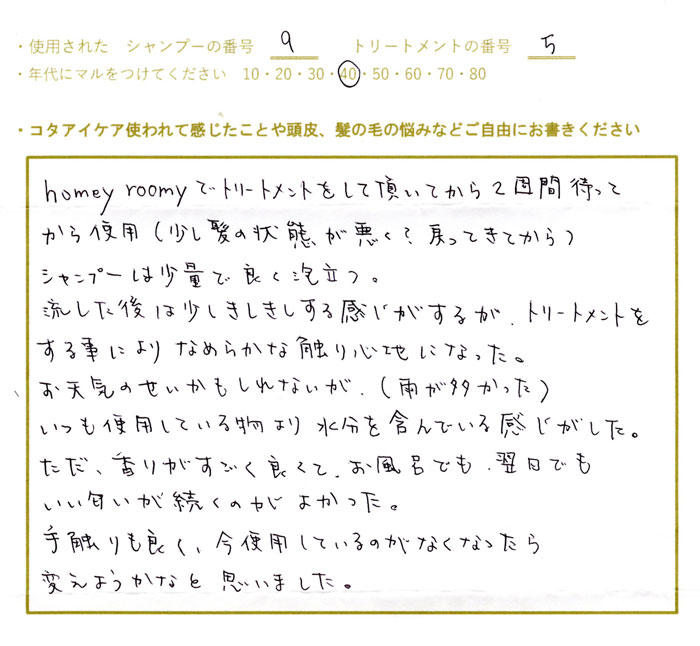 ・使用された シャンプーの番号 9 トリートメントの番号 5
・年代にマルをつけてください 10・20・30・40・50・60・70・80
・コタアイケア使われて感じたことや頭皮、髪の毛の悩みなどご自由にお書きください
homey roomyでトリートメントをして頂いてから2週間待って
から使用(少し髪の状態が悪く?戻ってきてから)
シャンプーは少量で良く泡立つ。
流した後は少しきしきしする感じがするが、トリートメントを
する事によりなめらかな触り心地になった。
お天気のせいかもしれないが、(雨が多かった)
いつも使用している物より水分を含んでいる感じがした。
ただ、香りがすごく良くて、お風呂でも、翌日でも
いい匂いが続くのがよかった。
手触りも良く、今使用しているのがなくなったら
変えようかなと思いました。